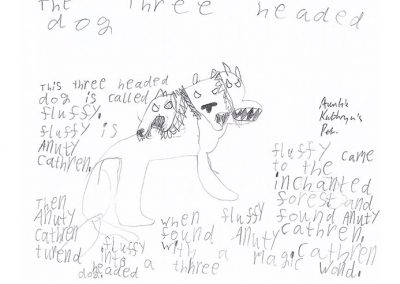 The Three headed
dog
This three headed
dog is called
fluffy.
fluffy is
Anuty
Cathren.
Auntie
Kathryn's
Pet.
fluffy came
to the
inchanted
forest and
found Anuty
Cathren.
Then
Anuty
Cathren
turend fluffy
into a thhree
headed
dog.
when fluffy
found Anuty
with a magic
Cathren
wond.